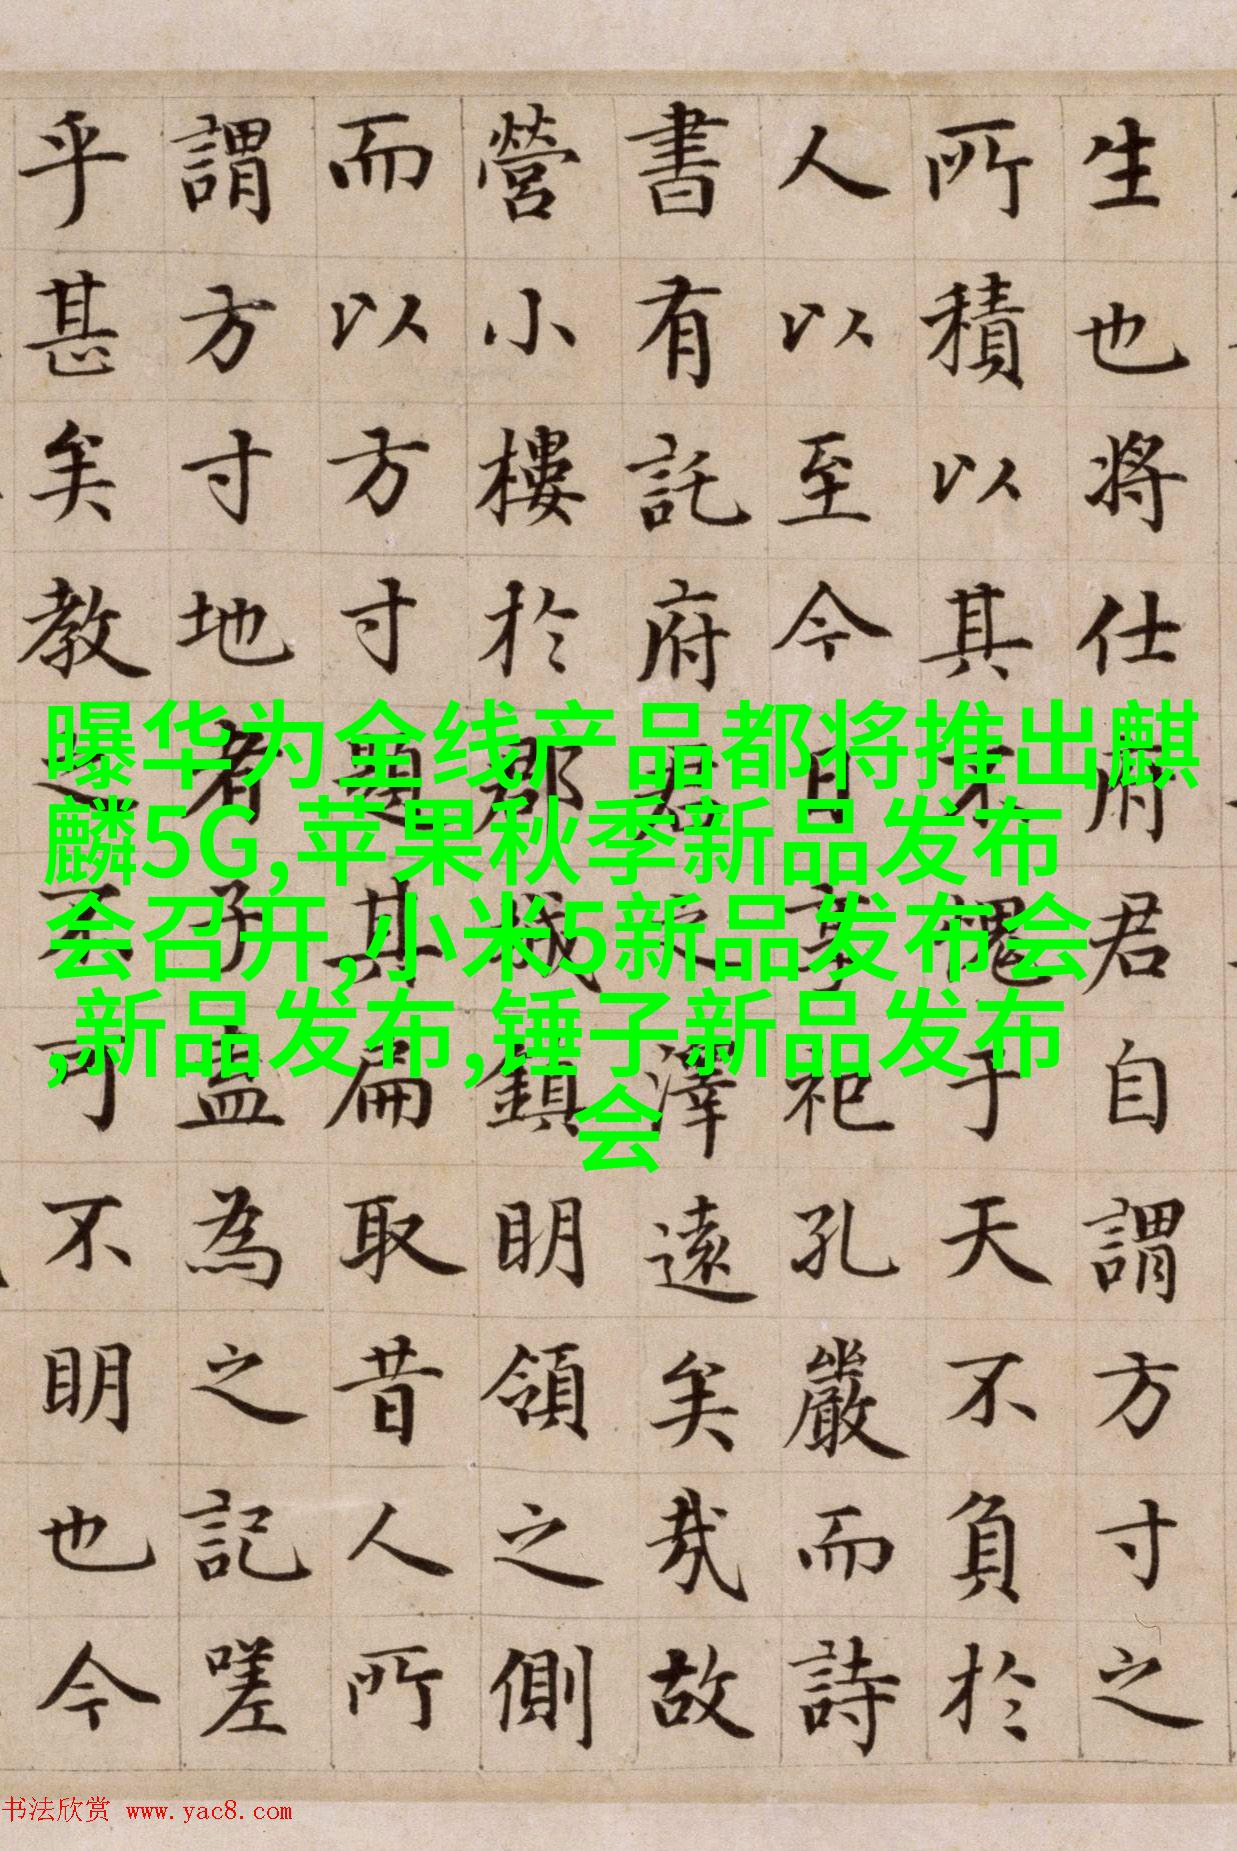 生也将仕府君自謂方寸之
所積以其愧于天不負於
人以至今日事祀孔嚴而詩
書有託府君之澤遠矣哉故
營小樓於郡城鎮明領之側
而以方寸題其扁取昔人所
謂方寸地者子盍為之記嗟
乎甚矣教之不可不明也今
曝华为全线产品都将推出麒
麟5G,苹果秋季新品发布
会召开,小米5新品发布会
,新品发布,锤子新品发布
会
书法欣赏 www.yac8.com